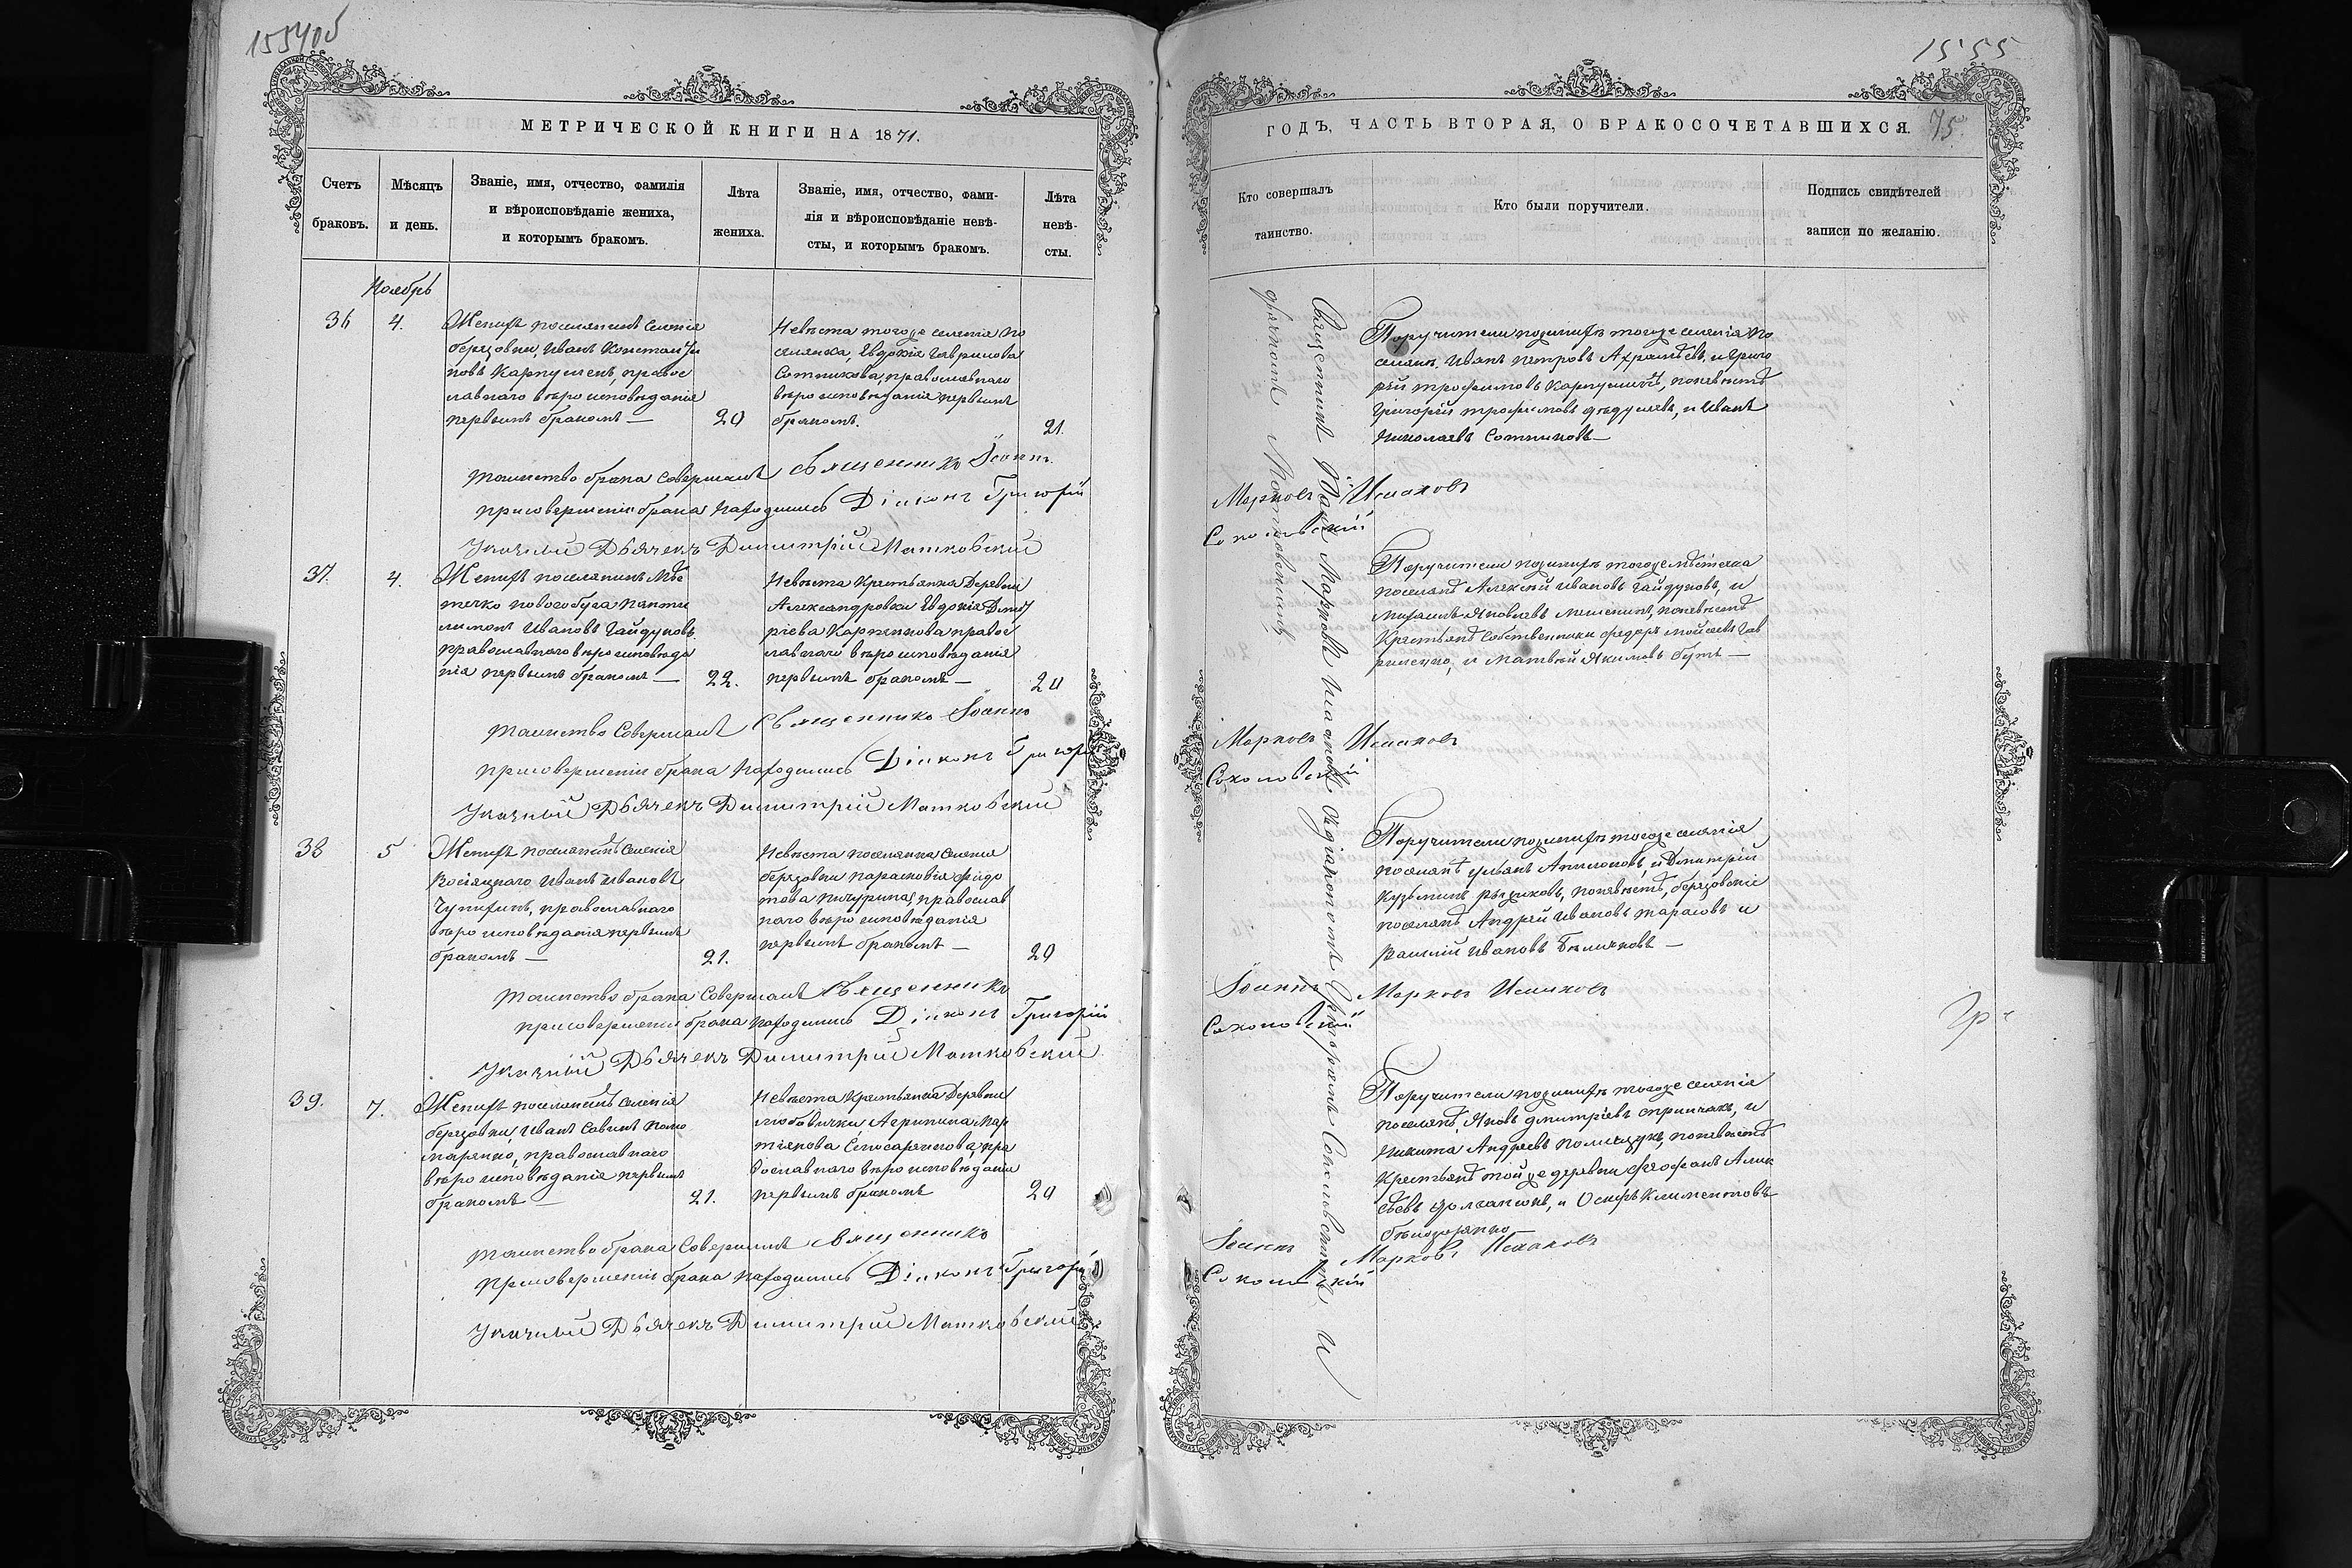 1554об
МЕТРИЧЕСКОЙ КНИГИ НА 1871.
Счетъ
браковъ.
Мѣсяцъ
и день.
Званіе, имя, отчество, фамилія
и вѣроисповѣданіе жениха,
и которымъ бракомъ.
Лѣта
жениха.
Званіе, имя, отчество, фами-
лія и вѣроисповѣданіе невѣ-
сты, и которымъ бракомъ.
Лѣта
невѣ-
сты.
Ноябрь
36
4.
Женихъ поселянинъ селенія
березовки, Иванъ Константи
новъ Карпушенъ, правос
лавнаго вѣроисповѣданія
первымъ бракомъ —
20
Невѣста тогоже селенія по
селянка, Евдокія Гаврилова
Сотникова, православнаго
вѣроисповѣданія первымъ
бракомъ.
21.
таинство брака совершалъ Священникъ Іоаннъ
присовершеніи брака находились Діаконъ Григорій
Указный Дьячекъ Димитрій Матковскій
37.
4.
Женихъ поселянинъ Мѣс
течко новогобуга Панте
лимонъ Ивановъ Гайдуковъ
православнаго вѣроисповѣда
нія первымъ бракомъ —
22.
Невѣста крестьянка Деревни
Александровки Евдокія Дмит
ріева Карпенкова правос
лавнаго вѣроисповѣданія
первымъ бракомъ —
20
таинство совершалъ Священникъ Іоаннъ
присовершеніи брака находились Діаконъ Григорій
Указный Дьячекъ Димитрій Матковскій
38
5
Женихъ поселянинъ селенія
Касіяцкаго Иванъ Ивановъ
Чупихинъ, православнаго
вѣроисповѣданія первымъ
бракомъ —
21.
Невѣста поселянка селенія
березовки парасковія Федо
това Пичурина, православ
наго вѣроисповѣданія
первымъ бракомъ —
20
таинство брака совершалъ Священникъ
присовершеніи брака находились Діаконъ Григорій
Указный Дьячекъ Димитрій Матковскій
39.
7.
Женихъ поселянинъ селенія
березовки, Иванъ Савинъ Поно
маренко, православнаго
вѣроисповѣданія первымъ
бракомъ —
21.
Невѣста крестьянка Деревни
любовички, Агрипина Мар
тинова пра
вославнаго вѣроисповѣданія
первымъ бракомъ
20
таинство брака совершалъ Священникъ
присовершеніи брака находились Діаконъ Григорій
Указный Дьячекъ Димитрій Матковскій
1555
ГОДЪ, ЧАСТЬ ВТОРАЯ, О БРАКОСОЧЕТАВШИХСЯ.
75.
Кто совершалъ
таинство.
Кто были поручители.
Подпись свидѣтелей
записи по желанію.
Священникъ Іоаннъ Марковъ Исаковъ съдіакономъ Григоріемъ Соколовскимъ и
дьячкомъ Матковскимъ
Поручители поженихѣ тогоже селенія по
селяне, Иванъ Петровъ и Григо
рій трофимовъ Карпушинъ, поневѣстѣ
Григорій трофимовъ Федулевъ, и Иванъ
Николаевъ Сотниковъ —
Марковъ Исаковъ
Соколовскій
Поручители поженихѣ тогоже мѣстечка
поселяне Алексѣй Ивановъ Гайдуковъ, и
Михаилъ Яковлевъ поневѣстѣ
Крестьяне собственники федоръ Мойсеевъ Гав
риленко, и Матвѣй Якимовъ бутъ —
Марковъ Исаковъ
Соколовскій
Поручители поженихѣ тогоже селенія
поселяне ульянъ и Дмитрій
Кузьминъ поневѣстѣ, березовскіе
поселяне Андрей Ивановъ тарасовъ и
Василій Ивановъ —
Іоаннъ Марковъ Исаковъ
Соколовскій
Поручители поженихѣ тогоже селенія
поселяне, Яковъ дмитріевъ спринчакъ, и
Никита Андреевъ Полищукъ, поневѣстѣ
Крестьяне тойже деревни феофанъ Алек
сѣевъ и Осипъ Климентовъ
Іоаннъ Марковъ Исаковъ
Соколовскій